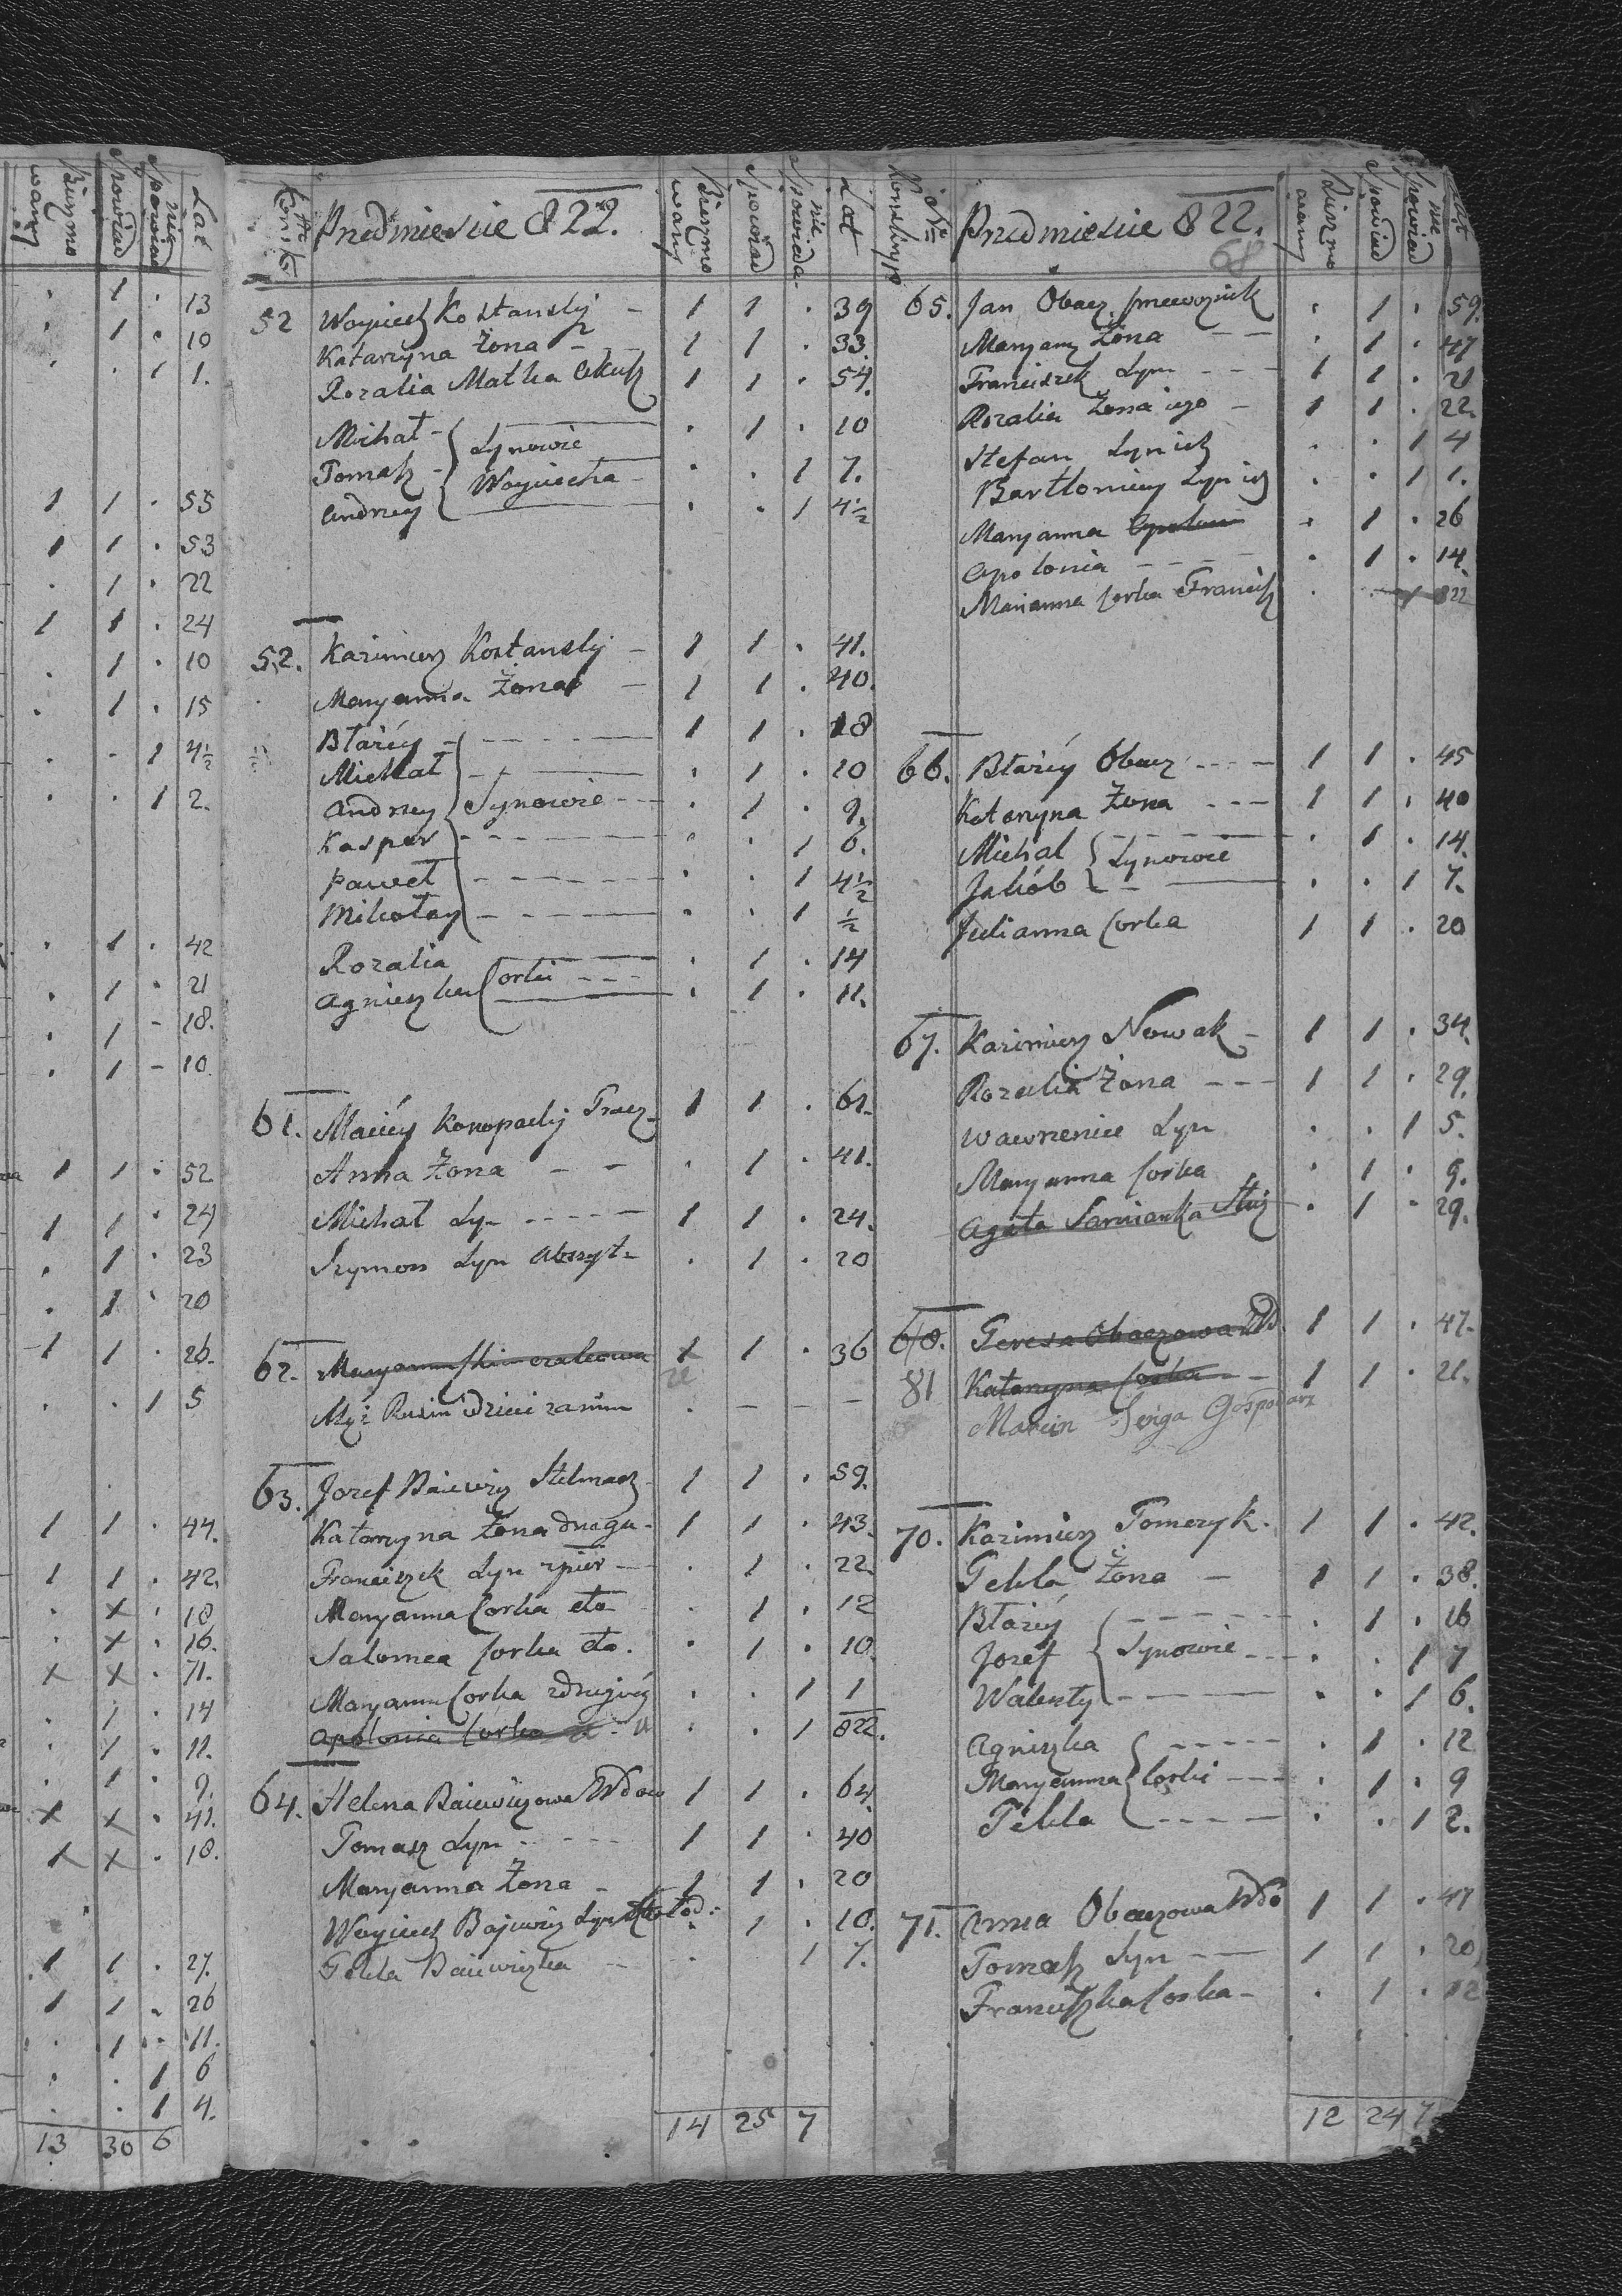 Lat
nie
Spowiad
Spowiad
Bierzmo
wany
. 1 . 13
. 1 . 10
. . 1 1.
1 1 . 55
1 1 . 53
. 1 . 22
1 1 . 24
. 1 . 10
. 1 . 15
. . 1 4½
. . 1 2.
. 1 . 42
. 1 . 21
. 1 - 18.
. 1 - 10.
1 1 . 52
1 1 . 24
. 1 . 23
. 1 . 20
1 1 . 26.
. . 1 5
1 1 . 44.
1 1 . 42.
. x . 18
. x . 16.
x x . 71.
. 1 . 14
. 1 . 11.
. 1 . 9.
x x . 41.
x x . 18.
1 1 . 27.
1 1 . 26
. 1 . 11.
. . 1 6
. . 1 4.
13 30 6
Przedmiescie 822.
Bierzmo
wany
Spowiad
nie
Spowiada
Lat
52 Woyciech Kostanskij - 1 1 . 39
Katarzyna Żona - 1 1 . 33.
Rozalia Matka 1 1 . 54.
Michał - . 1 . 10
Synowie
Tomasz - . . 1 7.
Woyciecha
Andrzey . . 1 4½
52. Kazimierz Kostanskij - 1 1 . 41.
Maryanna Żona - 1 1 . 40.
Błażéy - 1 1 . 18
Michał - . 1 . 10
Andrzey Synowie - . 1 . 9.
Kasper - . . 1 6.
Paweł - . . 1 4½
Mikołay - . . 1 ½
Rozalia . 1 . 14
Agnieszka Corki - . 1 . 11.
61. Maciéy Konopackij Tracz - 1 1 . 61.
Anna Żona - - . 1 . 41.
Michał Syn - 1 1 . 24.
Szymon Syn Abszyt- . 1 . 20
62. 1 1 . 36
Mąż Rusin i dzieci za nim . - - -
63. Jozef Baiewicz Stelmach - 1 1 . 59.
Katarzyna Żona druga - 1 1 . 43.
Franciszek Syn zpier - . 1 . 22.
Maryanna Corka eto . 1 . 12
Salomea Corka eto. . 1 . 10.
Maryanna Corka zdrugiéy . . 1 1
Apolonia Corka . . 1 822.
64. Helena Baiewiczowa Wdow 1 1 . 64
Tomasz Syn - 1 1 . 40
Maryanna Żona - 1 1 . 20
Woyciech Bajewicz Syn . 1 . 10.
Tekla Baiewiczka - . . 1 7.
14 25 7
Nro
Konskryp
Przedmiescie 822.
68
Bierzmo
wany
Spowiad
nie
Spowiad
65. Jan Obacz przewoznik . 1 . 59.
Maryanna Żona - - . 1 . 47
Franciszek Syn - - - 1 1 . 21
Rozalia Żona iego - 1 1 . 22.
Stefan Syn ich . . 1 4
Bartłomiey Syn ich . . 1 1.
Maryanna . 1 . 26
Apolonia - - - . 1 . 14.
Marianna Corka Francisz . 1 822
66. Błażéy Obacz - - - 1 1 . 45
Katarzyna Żona - - - 1 1 . 40
Michał . 1 . 14.
Synowie
Jakób - . . 1 7.
Julianna Corka 1 1 . 20
67. Kazimierz Nowak - 1 1 . 34.
Rozalia Żona - - - 1 1 . 29.
Wawrzeniec Syn . . 1 5.
Maryanna Corka . 1 . 9.
Agata Sarnianka Służ . 1 . 29.
68. Teresa Obaczowa Wd. 1 1 . 47.
81 Katarzyna Corka - 1 1 . 21.
Marcin Gospodarz
70. Kazimierz Tomczyk. 1 1 . 42.
Tekla Żona - 1 1 . 38.
Błażéy - . 1 . 16
Jozef Synowie - . . 1 7
Walenty - . . 1 6.
Agniszka - . 1 . 12
Maryanna Corki - . 1 . 9
Tekla - . . 1 2.
71. Anna Obaczowa Wdo 1 1 . 47
Tomasz Syn - 1 1 . 20
Franciszka Corka - . 1 . 12
12 24 7